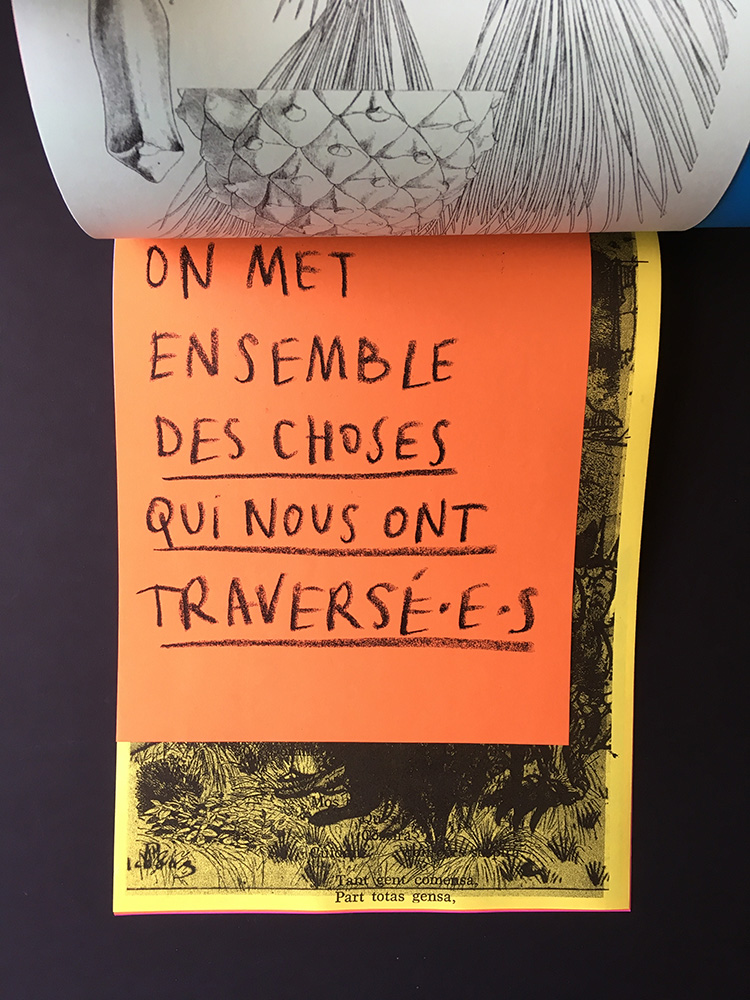 ON MET
ENSEMBLE
DES CHOSES
QUi NOUS ONT
TRAVERSÉ·E·S
Tant gent comensa,
Part totas gensa,